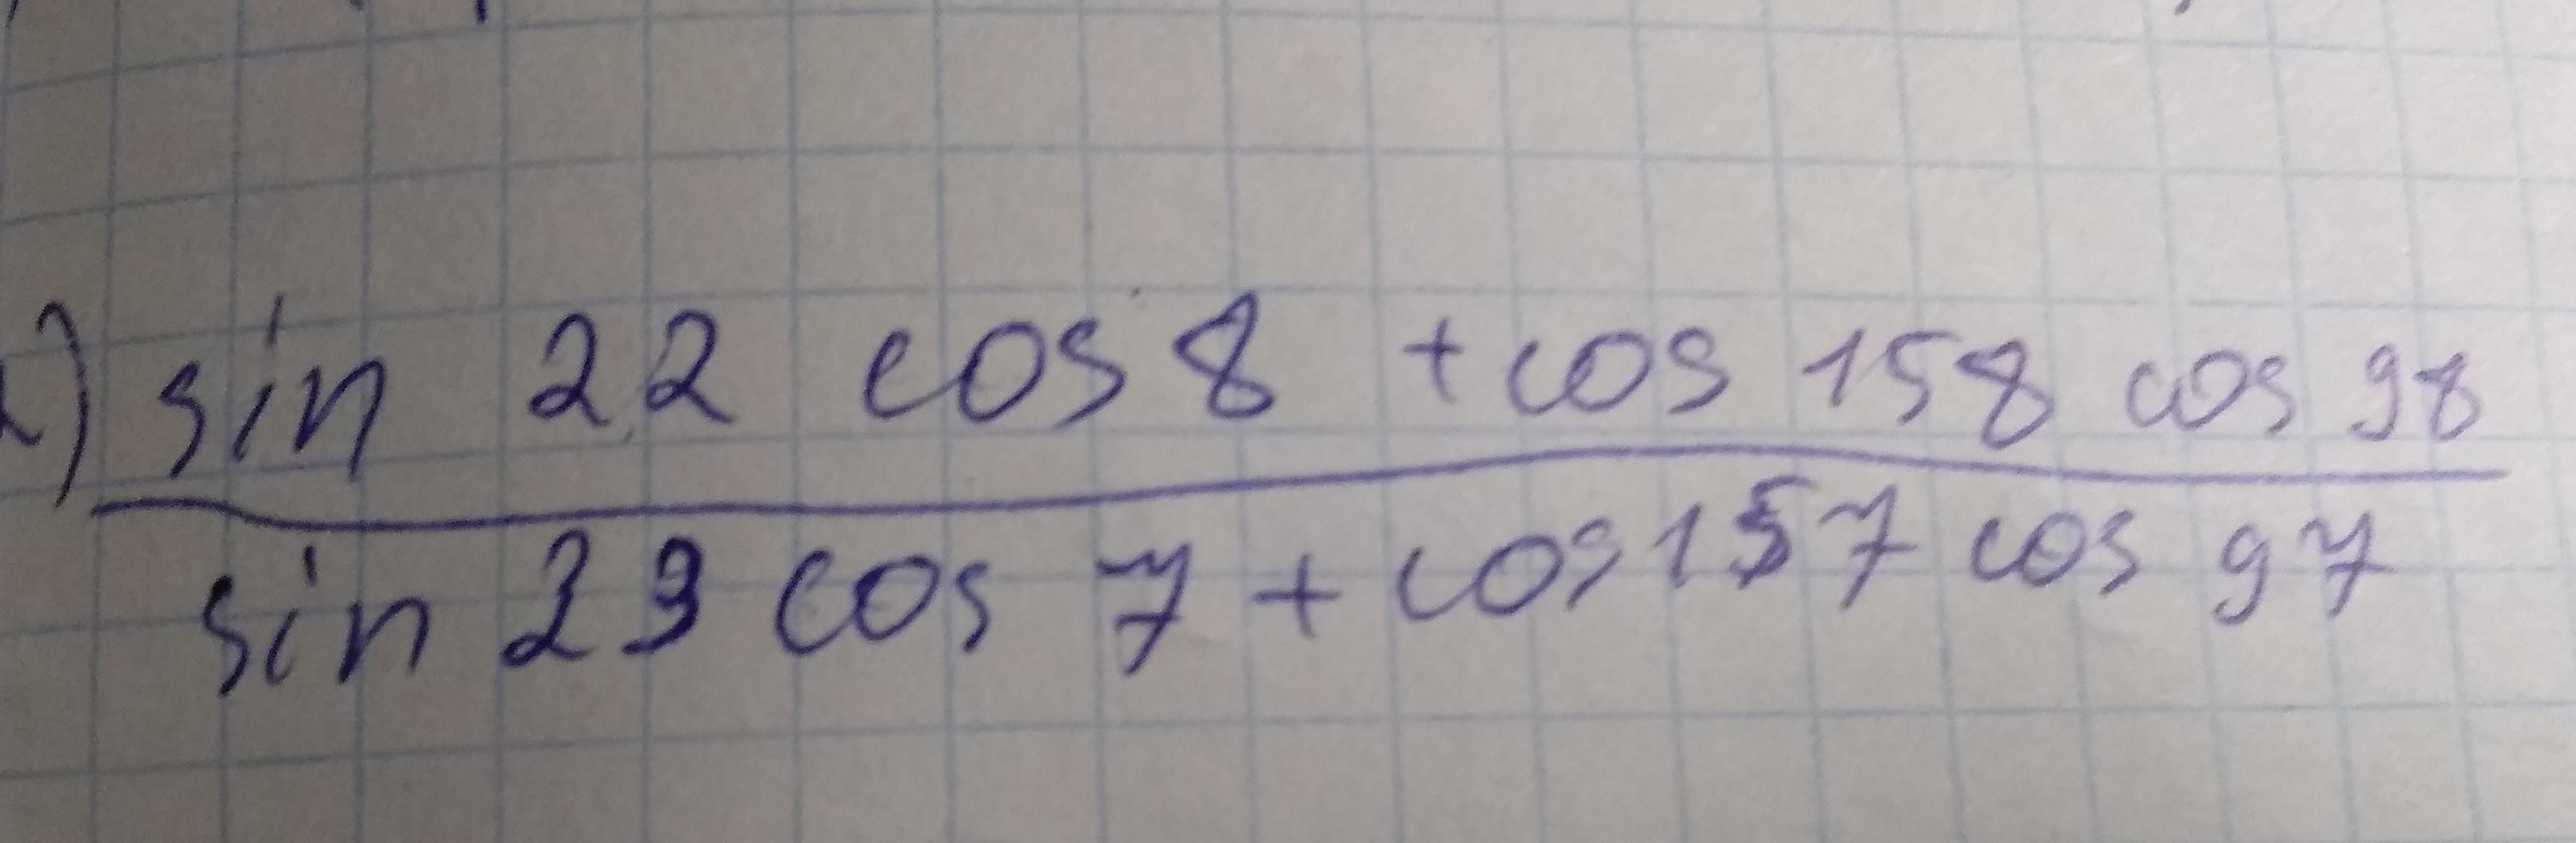 ) sin 22 cos 8 + cos 158 cos 98
sin 23 cos 7 + cos 157 cos 97